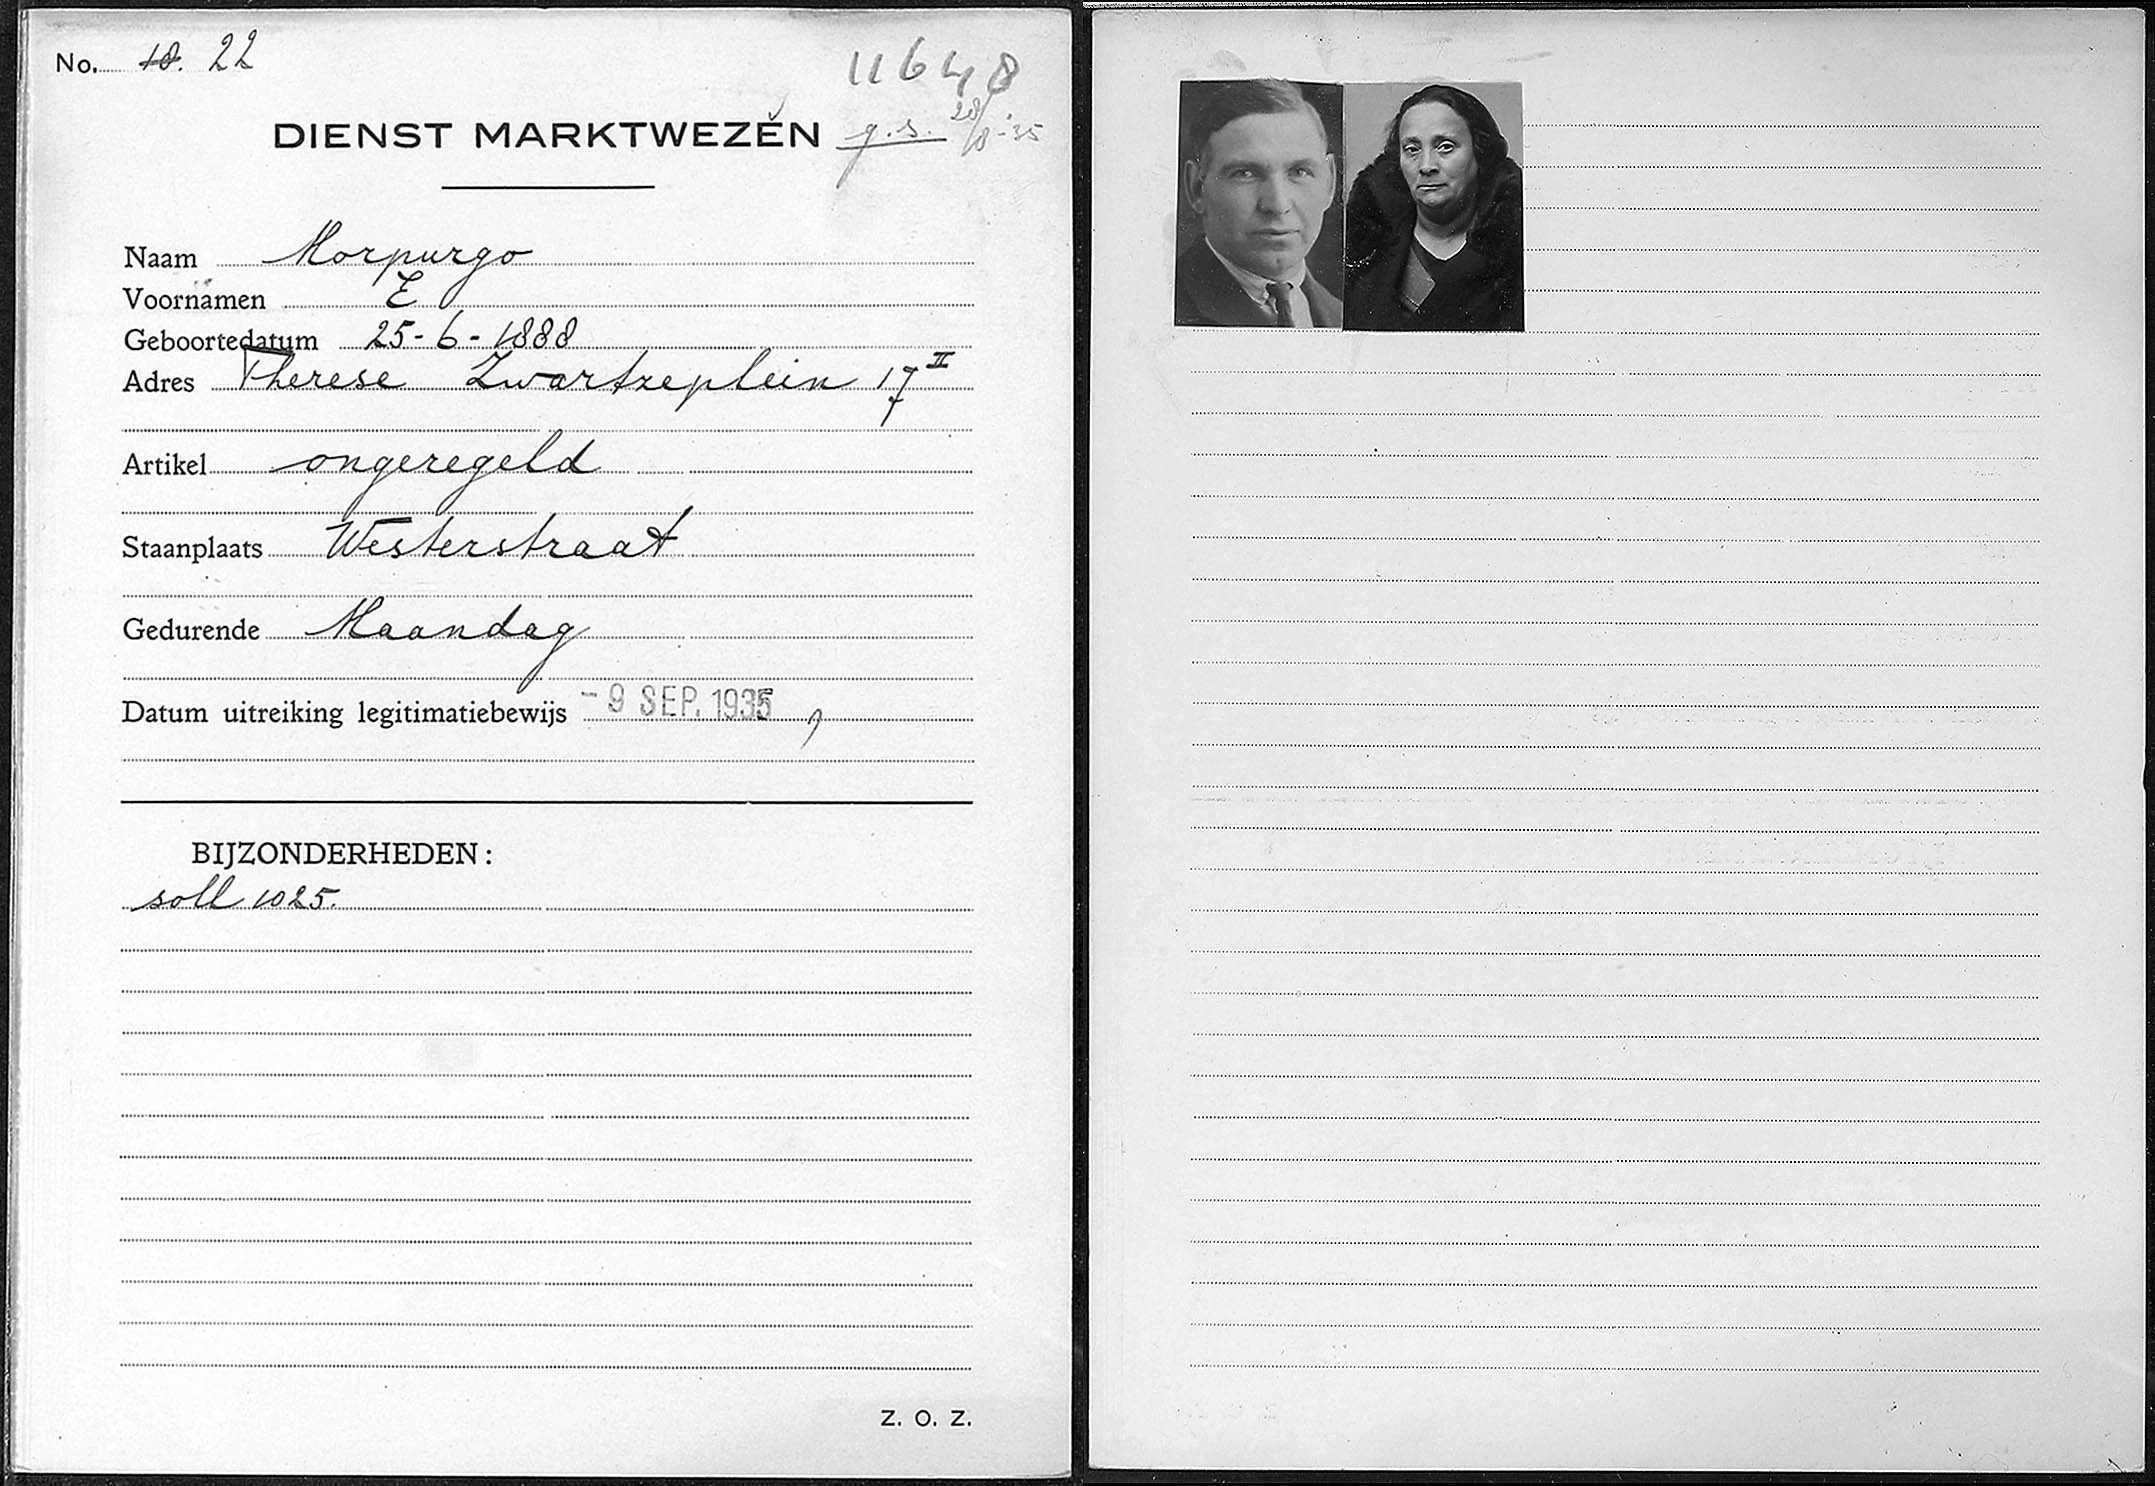 No. 18. 22
11648
DIENST MARKTWEZEN g.s. 28/8-35
Naam Morpurgo
Voornamen E
Geboortedatum 25-6-1888
Adres Therese Zwartzeplein 17 II
Artikel ongeregeld
Staanplaats Westerstraat
Gedurende Maandag
Datum uitreiking legitimatiebewijs -9 SEP. 1935
BIJZONDERHEDEN:
soll 1025.
Z. O. Z.